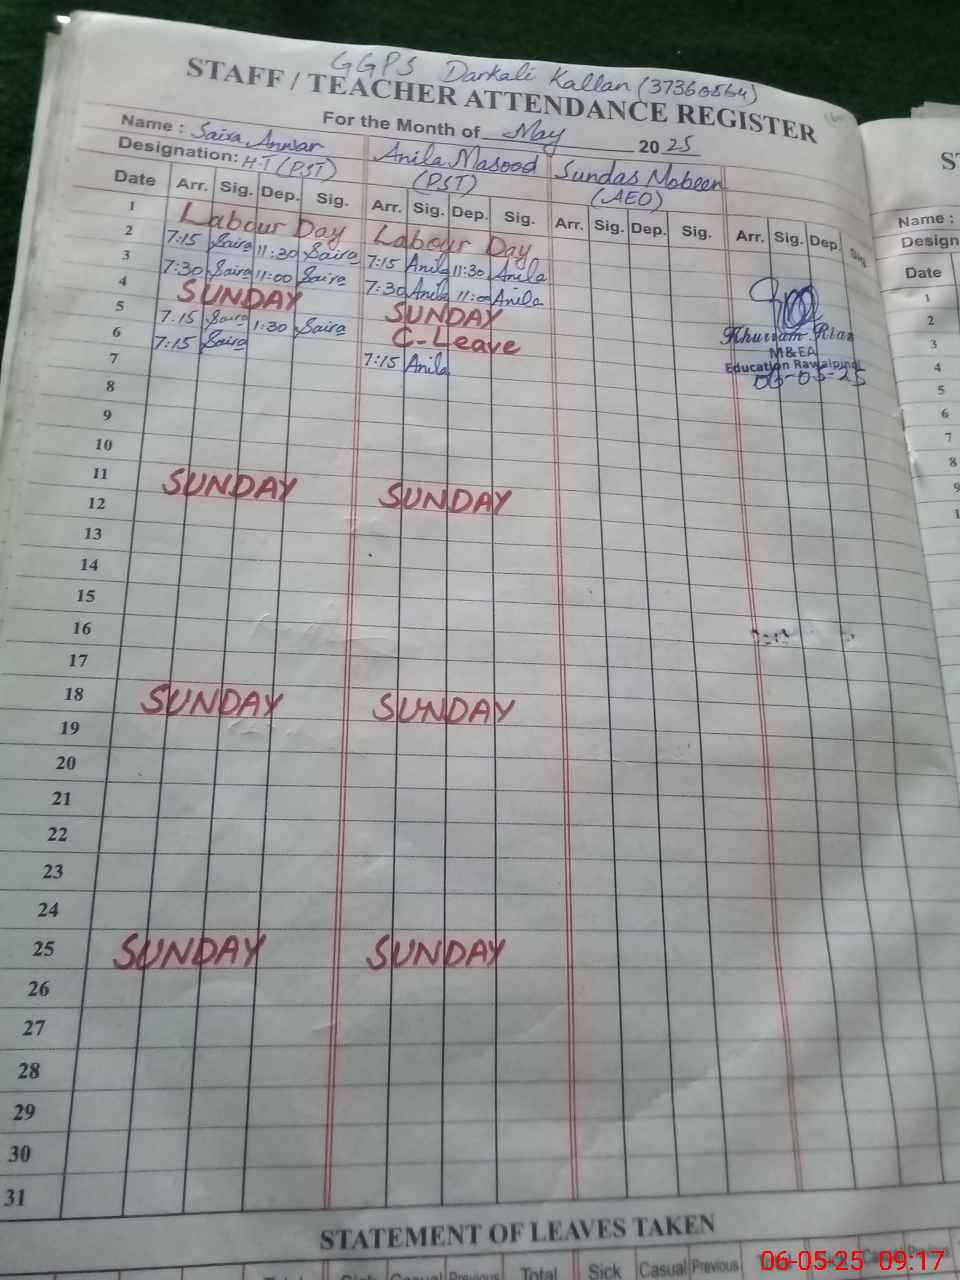 GGPS Darkali Kallan (37360564)
STAFF / TEACHER ATTENDANCE REGISTER
For the Month of May 2025
Name : Saira Anwar Anila Masood Sundas Mobeen
Designation: HT (PST) (PST) (AEO)
Date Arr. Sig. Dep. Sig. Arr. Sig. Dep. Sig. Arr. Sig. Dep. Sig. Arr. Sig. Dep. Sig.
1 Labour Day Labour Day
2 7:15 Saira 11:30 Saira 7:15 Anila 11:30 Anila
3 7:30 Saira 11:00 Saira 7:30 Anila 11:00 Anila
4 SUNDAY SUNDAY
5 7:15 Saira 1:30 Saira C-Leave
6 7:15 Saira 7:15 Anila
7
8
9
10
11 SUNDAY SUNDAY
12
13
14
15
16
17
18 SUNDAY SUNDAY
19
20
21
22
23
24
25 SUNDAY SUNDAY
26
27
28
29
30
31
Khurram Riaz
M&EA
Education Rawalpindi
06-05-25
STATEMENT OF LEAVES TAKEN
Total Sick Casual Previous Total Sick Casual Previous
Name :
Design
Date
1
2
3
4
5
6
7
8
9
06-05-25 09:17